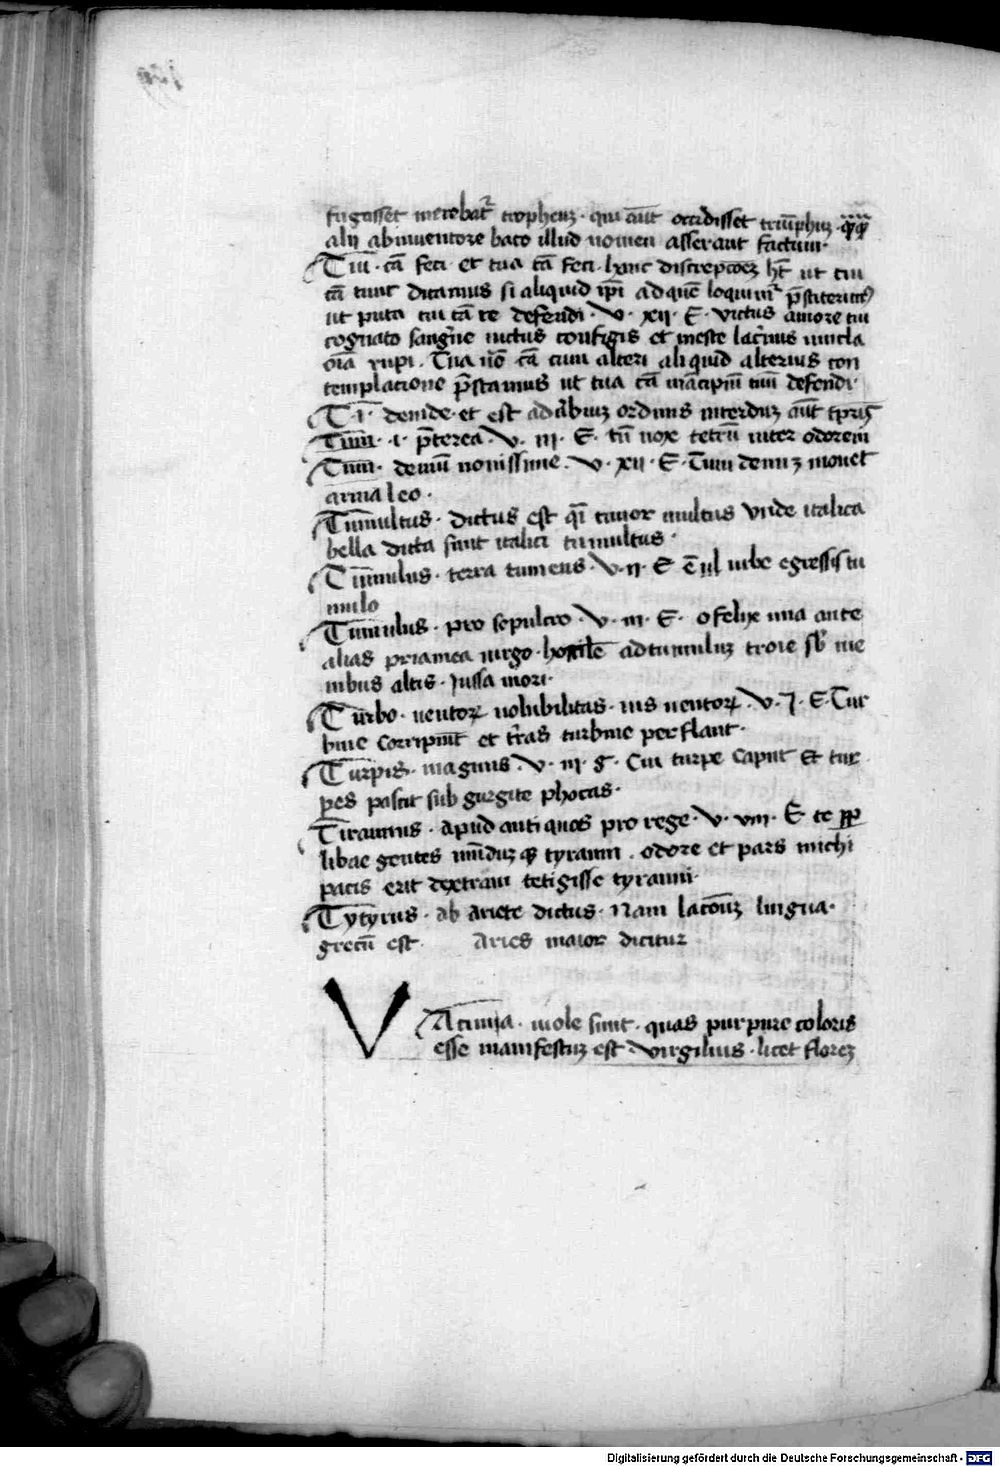 fugasset merebat᷑ tropheuʒ · qui aūt occidisset triūphuʒ · q̄q̄
alij ab inventore baco illud nomen asserant factum·
Tui · cā feci · et tua cā feci · huc discrepcoēʒ hr̄ ut tui
cā tunc dicamus si aliquid ip̄i ad quē loquim᷑ p̄stiterimꝰ
ut puta tui cā te defendi · V · xii · E · victus amore tui
cognato sang̍ne uictus coniugis et meste lac̍mis uincla
oīa rupi · Tua u̅o cā cum alteri aliquid alterius con
templacione p̄stamus ut tua cā mācipiū tuū defendi·
T · i · deinde · et est adu̍biuʒ ordinis interduʒ aūt tp̄ris
Tum̄ · i · p̄terea · V · iii · E · tū nox tetrū inter odorem
Tum̄ · demū nouissime · V · xii · E · Tum demuʒ mouet
arma leo ·
Tumultus · dictus est q̄i timor multus vnde italica
bella dicta sunt italici tumultus ·
Tumulus · terra tumens · V · ii · E ē ul urbe egressis tu
mulo
Tumulus · pro sepulcro · V · iii · E · o felix una ante
alias priamea uirgo · hostilē ad tumuluʒ troie sb̍ me
nibus altis · Jussa mori·
Turbo · uentoꝝ uolubilitas · uis uentoꝝ · V · J · E · Tur
bine corripiūt et tr̄as turbine perflant ·
Turpis · magnus · V · iii · g · Cui turpe caput Et tur
pes pascit sub gurgite phocas ·
Tirannus · apud antiquos pro rege · V · viii · E te pp̄
libae gentes nūiduʒ qꝫ tyranni · odore et pars michi
pacis erit dextram tetigisse tyranni·
Tytyrus · ab ariete dictus · Nam lacōnuʒ lingua ·
grecū est · Aries maior dicitur
VAcinia · uiole sunt · quas purpure coloris
esse manifestuʒ est · Virgilius · licet floreʒ
Digitalisierung gefördert durch die Deutsche Forschungsgemeinschaft - DFG